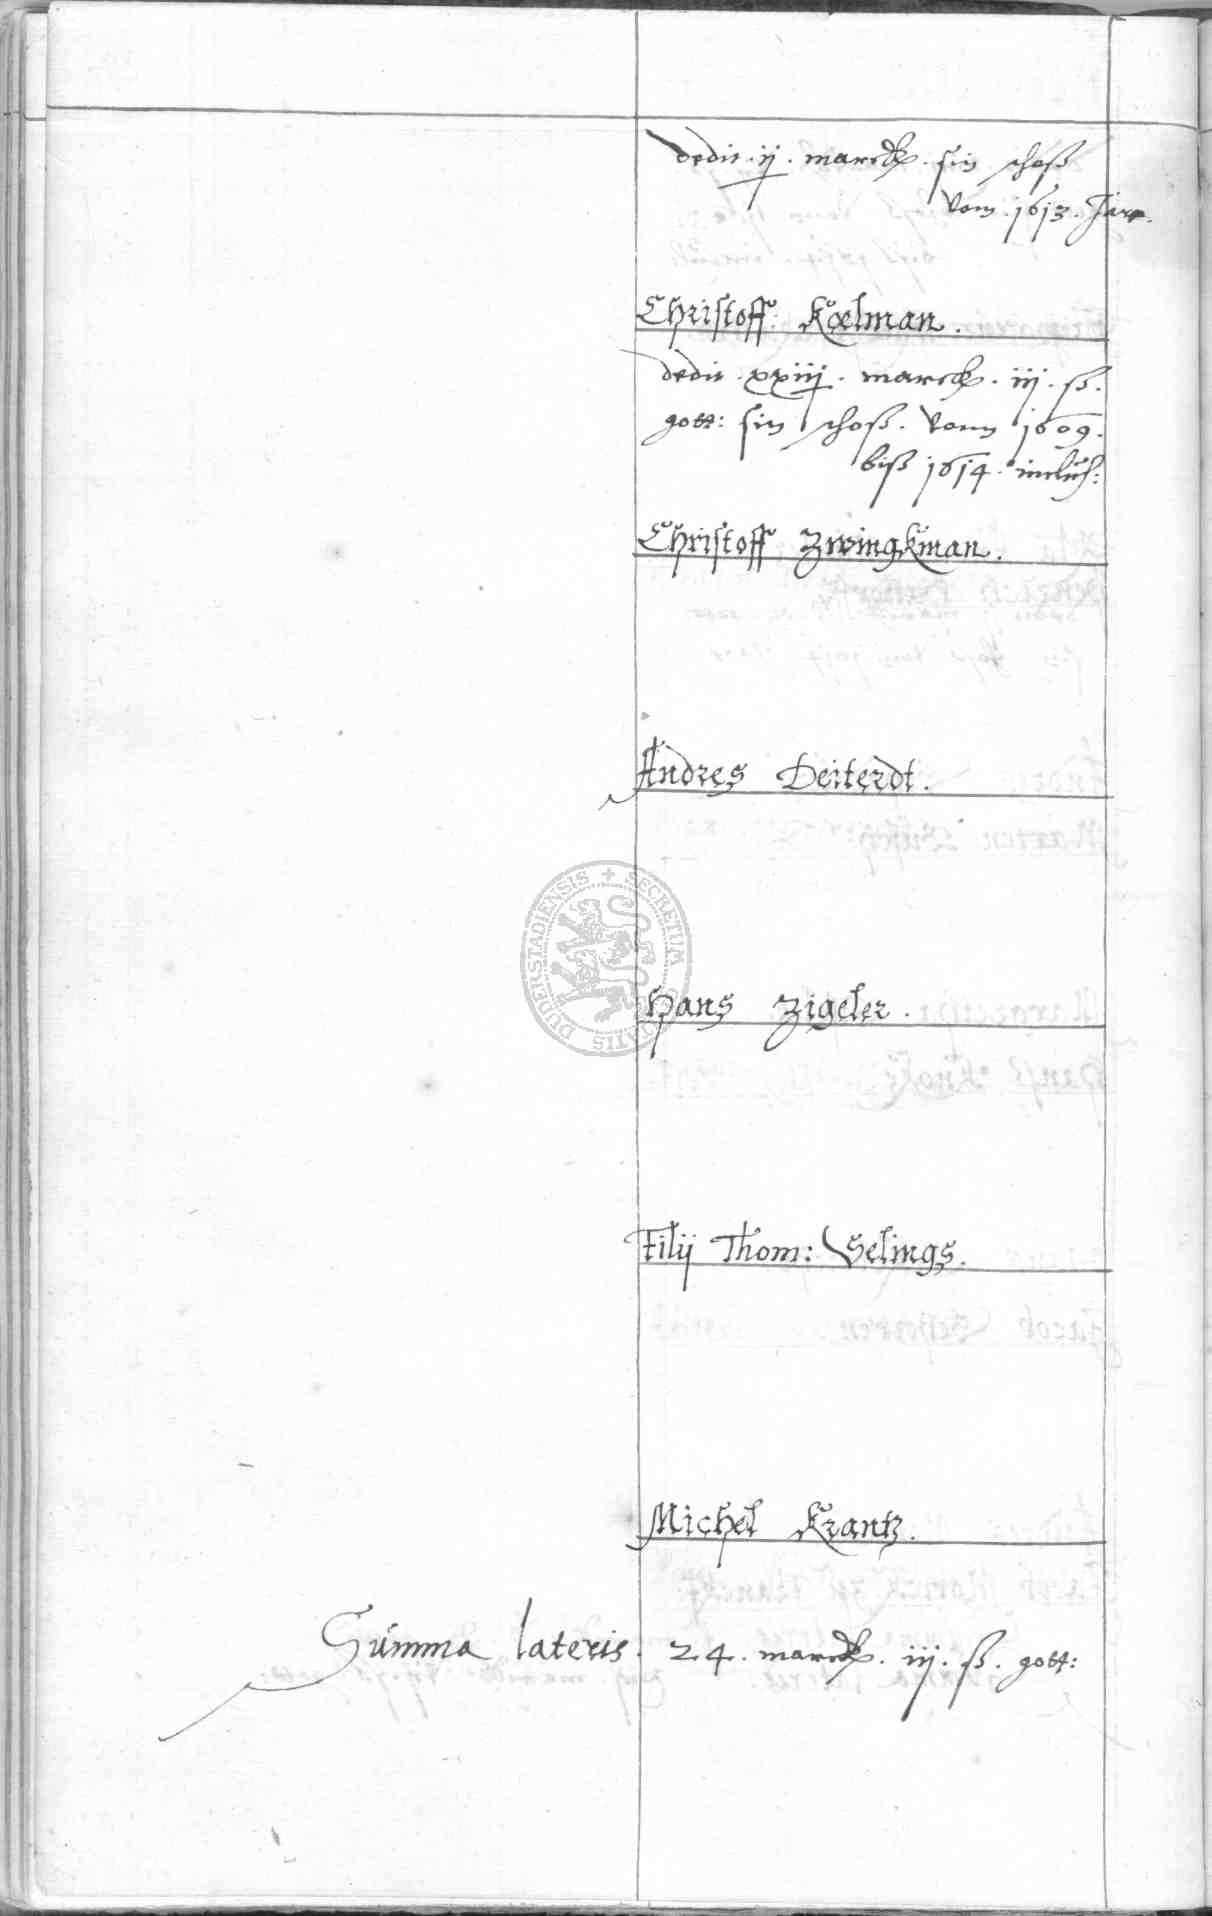 dedit . ij . marck . sin schoß
vom . 1613 . Jare .
Christoff Koelman .
dedit . xxiij . marck . iij . ß .
gott : sin schoß . vom 1609 .
biß 1614 . inclus :
Christoff Zwingkman .
Andres Deiterdt .
DUDERSTADIENSIS + SECRETUM
Hans Zigeler .
Filij Thom : Selings .
Michel Krantz .
Summa lateris . 24 . marck . iij . ß . gott :